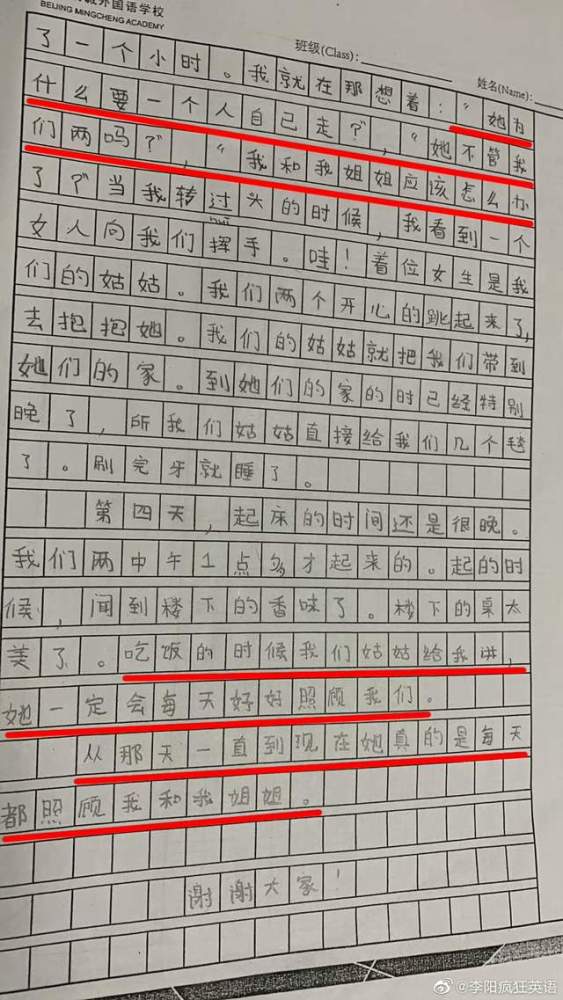 外国语学校
BEIJING MINGCHENG ACADEMY
班级(Class):
姓名(Name):
了一个小时。我就在那想着:“她为
什么要一个人自己走?”,“她不管我
们两吗?”,“我和我姐姐应该怎么办
了?”当我转过头的时候,我看到一个
女人向我们挥手。哇!着位女生是我
们的姑姑。我们两个开心的跳起来了,
去抱抱她。我们的姑姑就把我们带到
她们的家。到她们的家的时已经特别
晚了,所我们姑姑直接给我们几个毯
了。刷完牙就睡了。
第四天,起床的时间还是很晚。
我们两中午1点多才起来的。起的时
候,闻到楼下的香味了。楼下的桌太
美了。吃饭的时候我们姑姑给我讲,
她一定会每天好好照顾我们。
从那天一直到现在她真的是每天
都照顾我和我姐姐。
谢谢大家!
@李阳疯狂英语